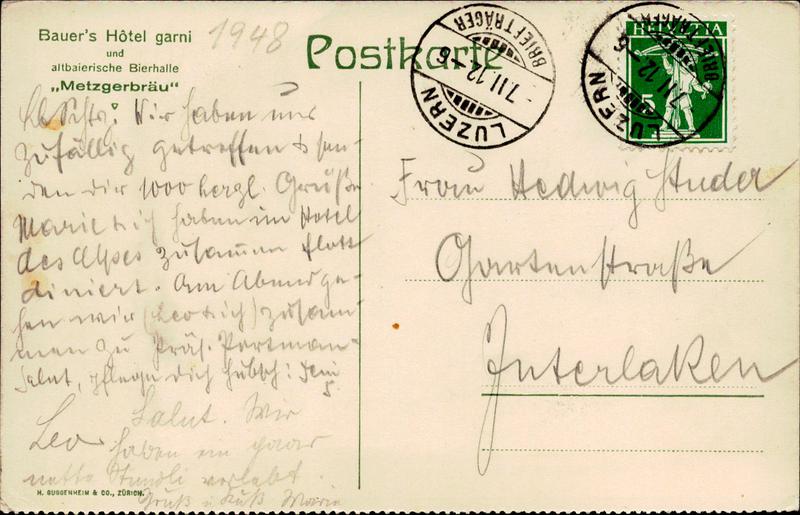 Bauer's Hôtel garni
und
altbaierische Bierhalle
„Metzgerbräu"
1948
Postkarte
LUZERN
7.II.12-6
BRIEFTRÄGER
HELVETIA
5
LUZERN
7.II.12-6
BRIEFTRÄGER
Wir haben uns
zufällig getroffen & sen-
den dir 1000 herzl. Grüße
Marie & ich haben im Hotel
des Alpes zusammen flott
diniert. Am Abend ge-
hen wir (Leo & ich) zusam-
men zu Präs. Portman-
Salut, pflege dich hübsch: dein
Leo
Salut. Wir
haben ein paar
nette Stundli verlebt.
Gruß u Kuß Marie
H. GUGGENHEIM & CO., ZÜRICH.
Frau Hedwig Studer
Gartenstraße
Interlaken